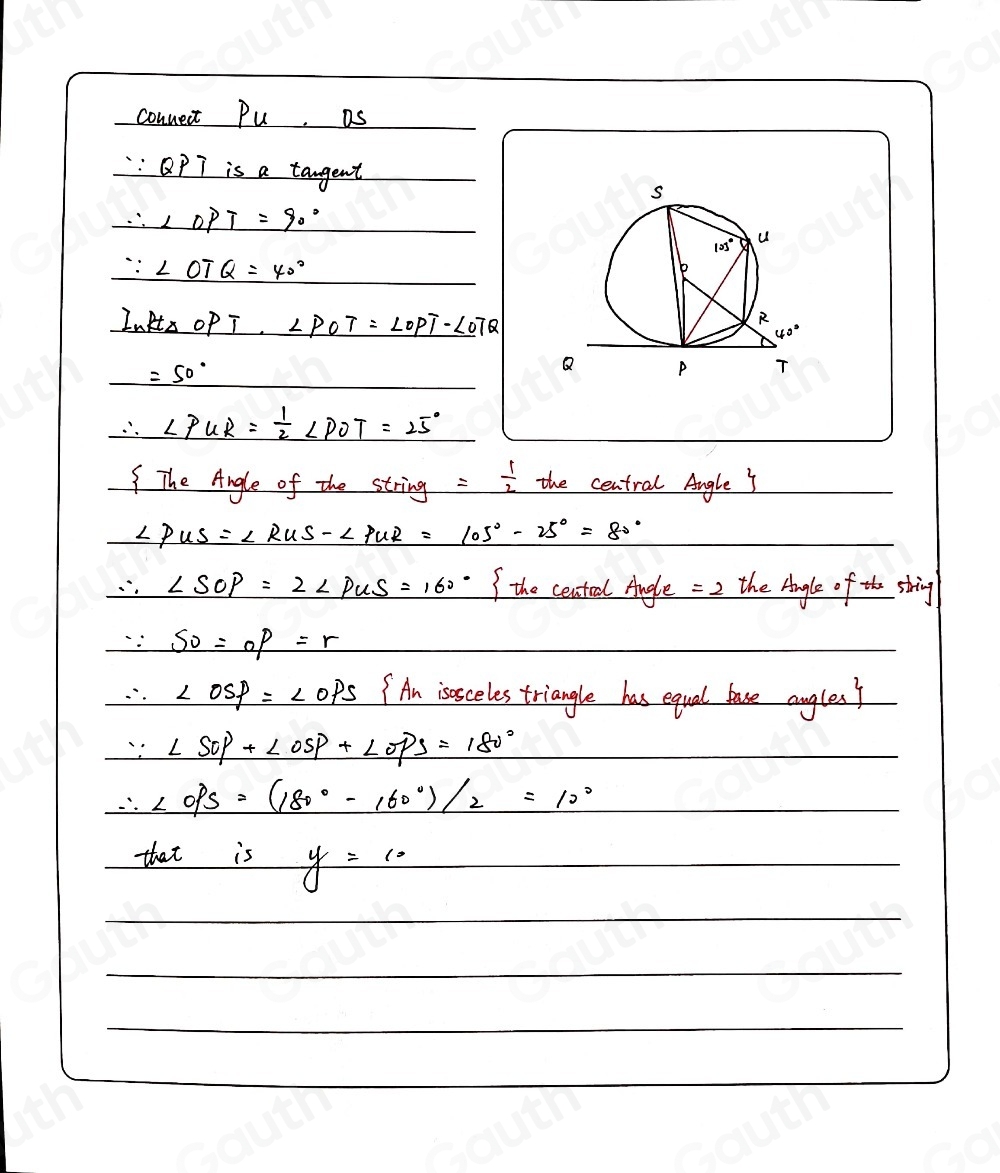 Connect PU . OS
∵ QPT is a tangent
∴ ∠OPT = 90°
∵ ∠OTQ = 40°
In Rt△ OPT . ∠POT = ∠OPT-∠OTQ
= 50°
∴ ∠PUR = 1/2 ∠POT = 25°
{ The Angle of the string = 1/2 the central Angle }
∠PUS = ∠RUS - ∠PUR = 105° - 25° = 80°
∴ ∠SOP = 2∠PUS = 160° { the central Angle = 2 the Angle of the string }
∵ SO = OP = r
∴ ∠OSP = ∠OPS { An isosceles triangle has equal base angles }
∵ ∠SOP + ∠OSP + ∠OPS = 180°
∴ ∠OPS = (180° - 160°)/2 = 10°
that is y = 10
S
105° U
O
R
40°
Q P T
Gauth